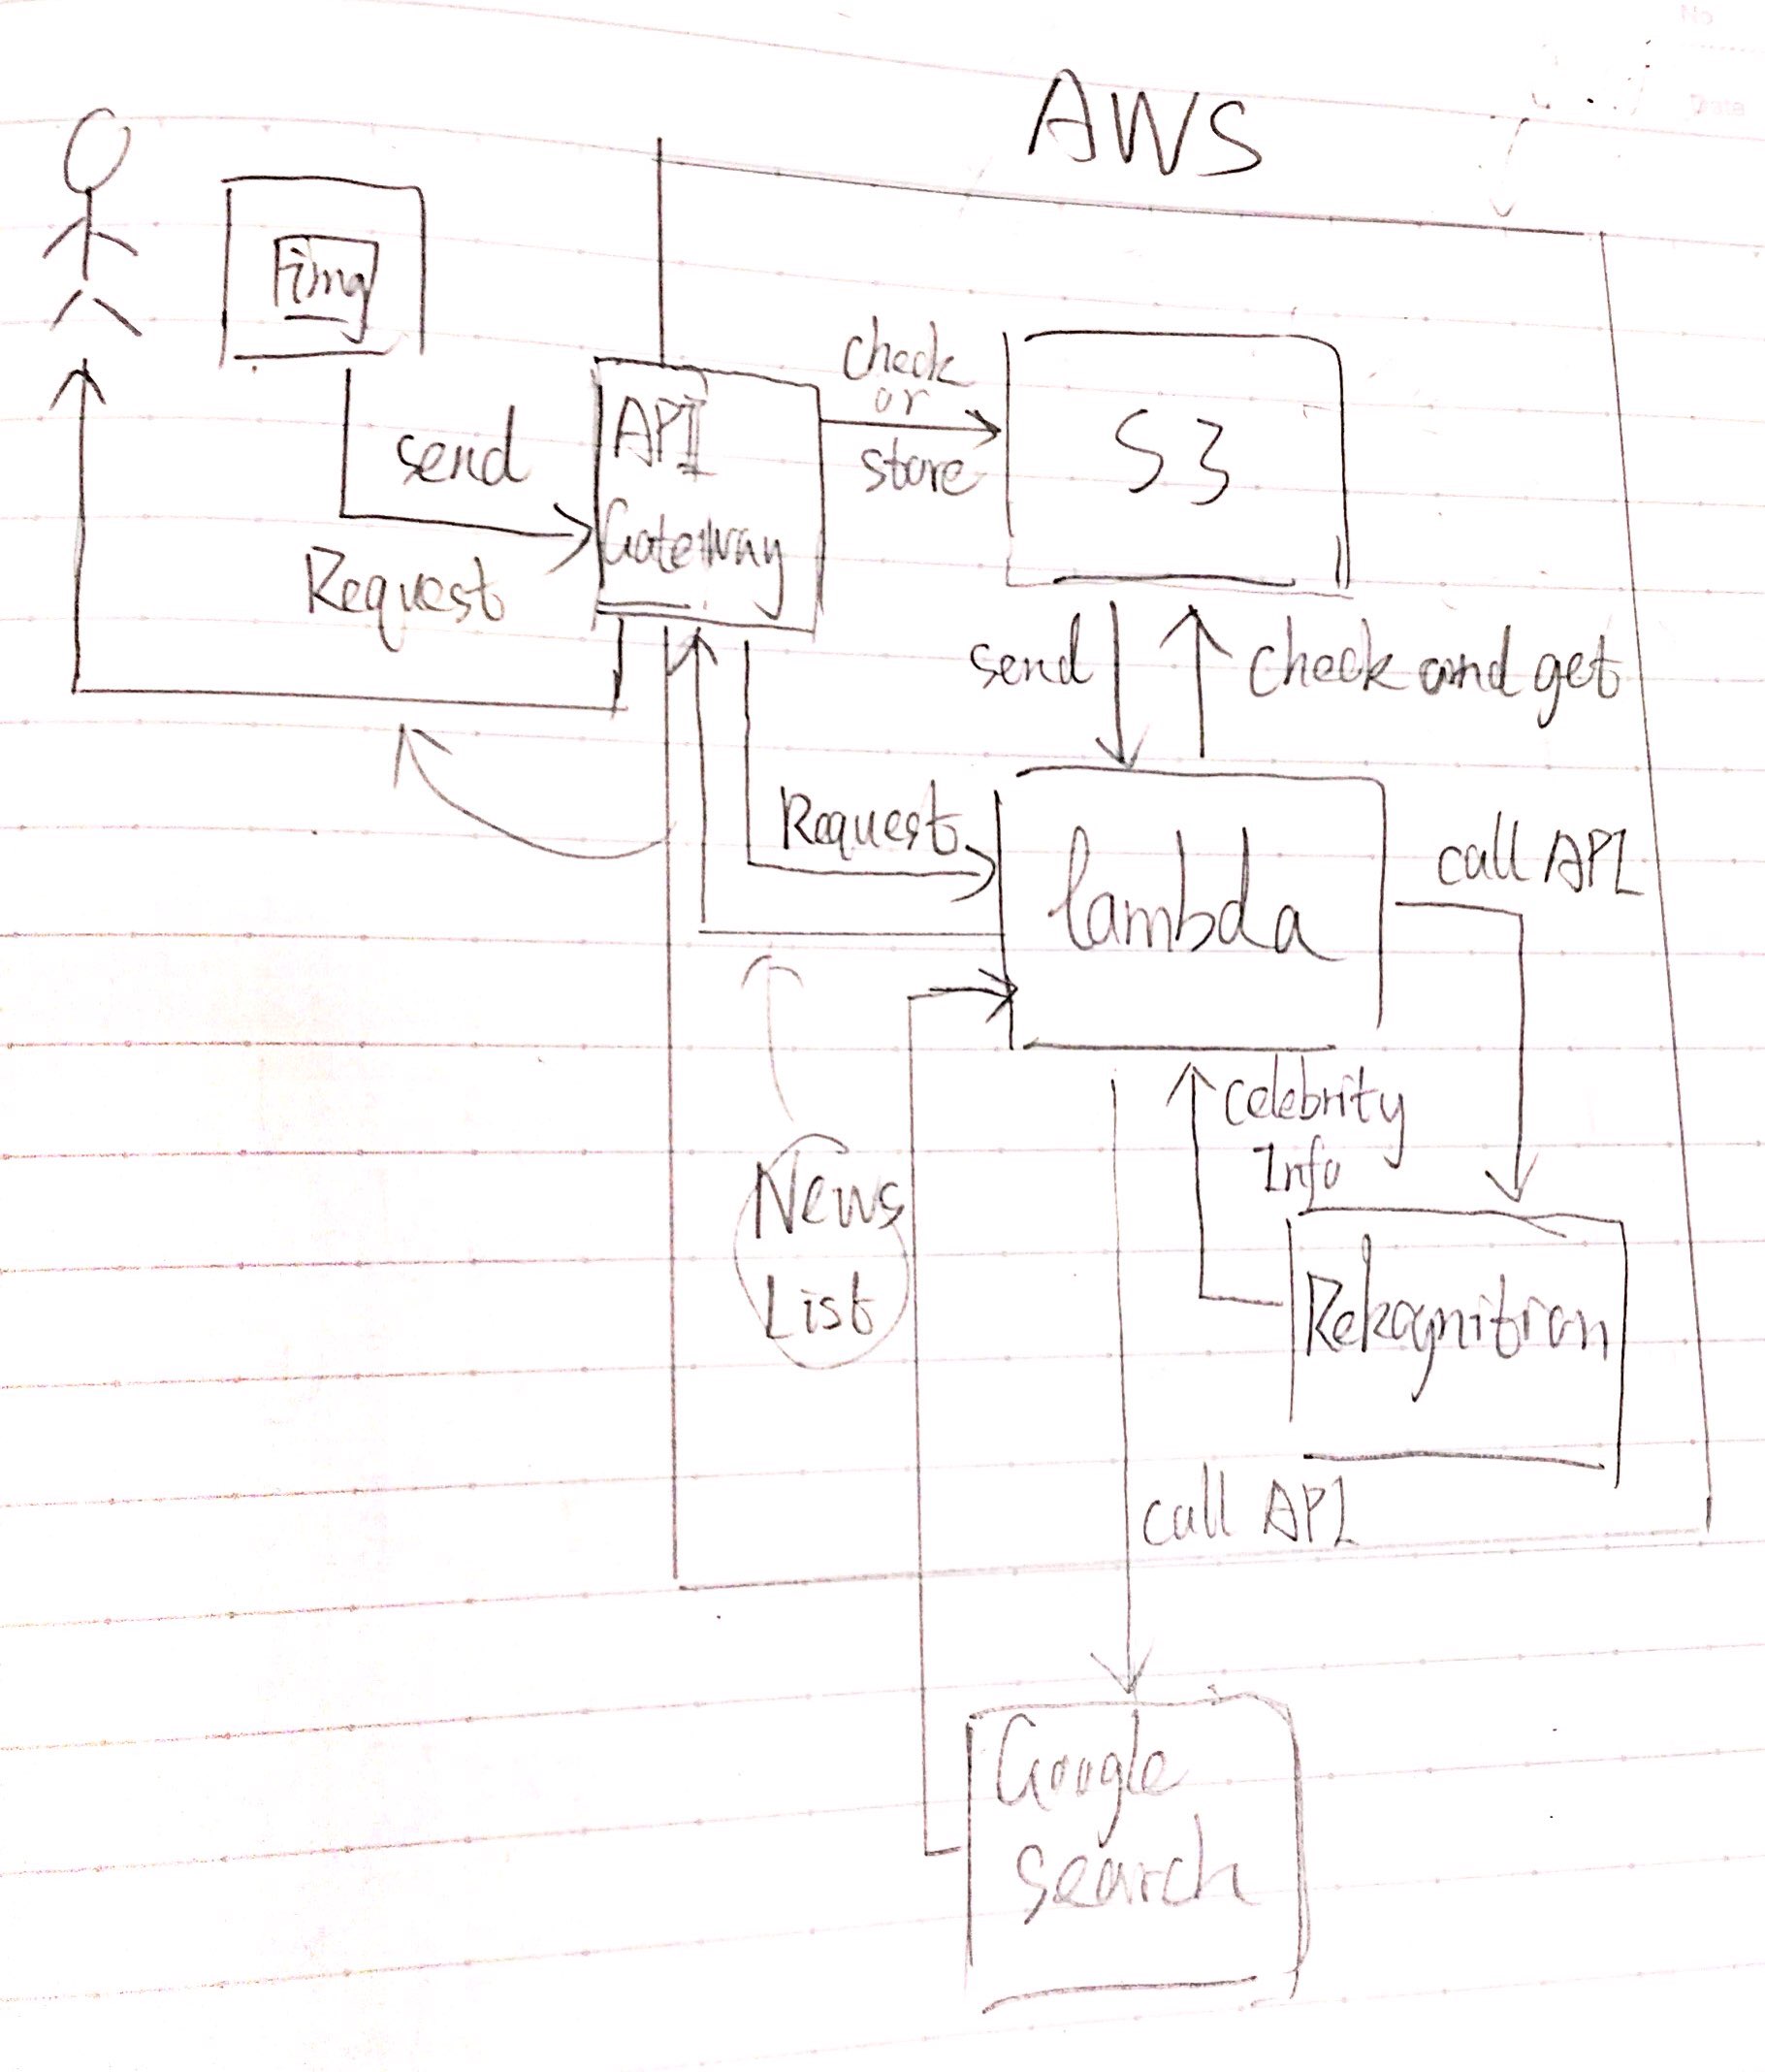 No
Date
AWS
img
send
Request
API
Gateway
check
or
store
S3
send
check and get
Request
lambda
call API
celebrity
Info
News
List
Rekognition
call API
Google
search